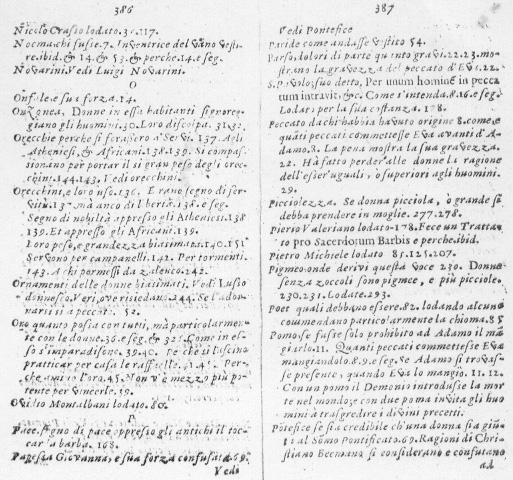 386
Nicolo Crasso lodato. 37.117.
Nocmachi fusse.7. Inventrice del vano vesti-
re.ibid.& 14. & 53.& perche.14.e seg.
Novarini.Vedi Luigi Novarini.
O
Onfale e sua forza.14.
Donne in essa habitanti signoreg-
giano gli huomini.30. Loro discolpa.31.32.
Orecchie perche si forassero a'Servi.137. Agli
Atheniesi, & Africani.138.139. Si compas-
sionano per portar il si gran peso degli orec-
chini.144.143. Vedi orecchini.
Orecchini, e loro uso.136. Erano segno di ser-
vitù.137.mà anco di libertà.138.e seg.
Segno di nobiltà appresso gli Atheniesi.138
139. Et appresso gli Africani.139.
Loro peso, e grandezza biasimata.140.151
Servono per campanelli.142. Per tormenti.
143. A chi permessi da Zalenco.242.
Ornamenti delle donne biasimati, Vedi Lusso
donnesco. Veri, ove risiedano.244. Se l'ador-
narsi sia peccato. 52.
Oro quanto possa con tutti, mà particolarmen-
te con le donne.36.e seg. & 321. Come in es-
so s'imparadisono.39.40. Pe che il lascino
pratticar per casa le raffaelle.41. Per-
che ami vo l'oro.45. Non v'è mezzo più po-
tente per vincerle.19.
Ovidio Montalbani lodato.80.
P
Pace. segno di pace appresso gli antichi il toc-
car la barba.168.
Papessa Giovanna, e sua forza confusata.69.
Vedi
387
Vedi Pontefice
Paride come andasse vestito 54.
Parto, dolori di parto quanto gravi.22.23.mo-
strano la gravezza del peccato d'Eva.22.
S.Pavolo suo detto, Per unum hominē in pecca
tum intravit, &c. Come s'intenda.8.16.e seg.
Lodato per la sua costanza.178.
Peccato da chi habbia havuto origine 8.come, e
quāti peccati commettesse Eva avanti d'A-
damo.8. La pena mostra la sua gravezza.
22. Hà fatto perder'alle donne la ragione
dell'esser'uguali, ò superiori agli huomini.
29.
Picciolezza. Se donna picciola, ò grande si
debba prendere in moglie.277.278.
Pierio Valeriano lodato.178.Fece un Tratta-
to pro Sacerdotum Barbis e perche.ibid.
Pietro Michiele lodato 85.125.207.
Pigmeo onde derivi questa voce 230. Donne
senza zoccoli sono pigmee, e più picciole.
230.231. Lodate.293.
Poeti quali debbano essere.82. lodando alcuno
commendano particolarmente la chioma.85
Pomo se fusse solo prohibito ad Adamo il mā-
giarlo.11. Quanti peccati commettesse Eva
mangiandolo.8.9.e seg. Se Adamo si trovas-
se presente, quando Eva lo mangiò.11.12.
Con un pomo il Demonio introdusse la mor
te nel mondo; e con due poma invita gli huo
mini à trasgredire i divini precetti.
Pōtefice se sia credibile ch'una donna sia giun-
ta al Sōmo Pontificato.69. Ragioni di Chri-
stiano Becmano si considerano e confutano
ad